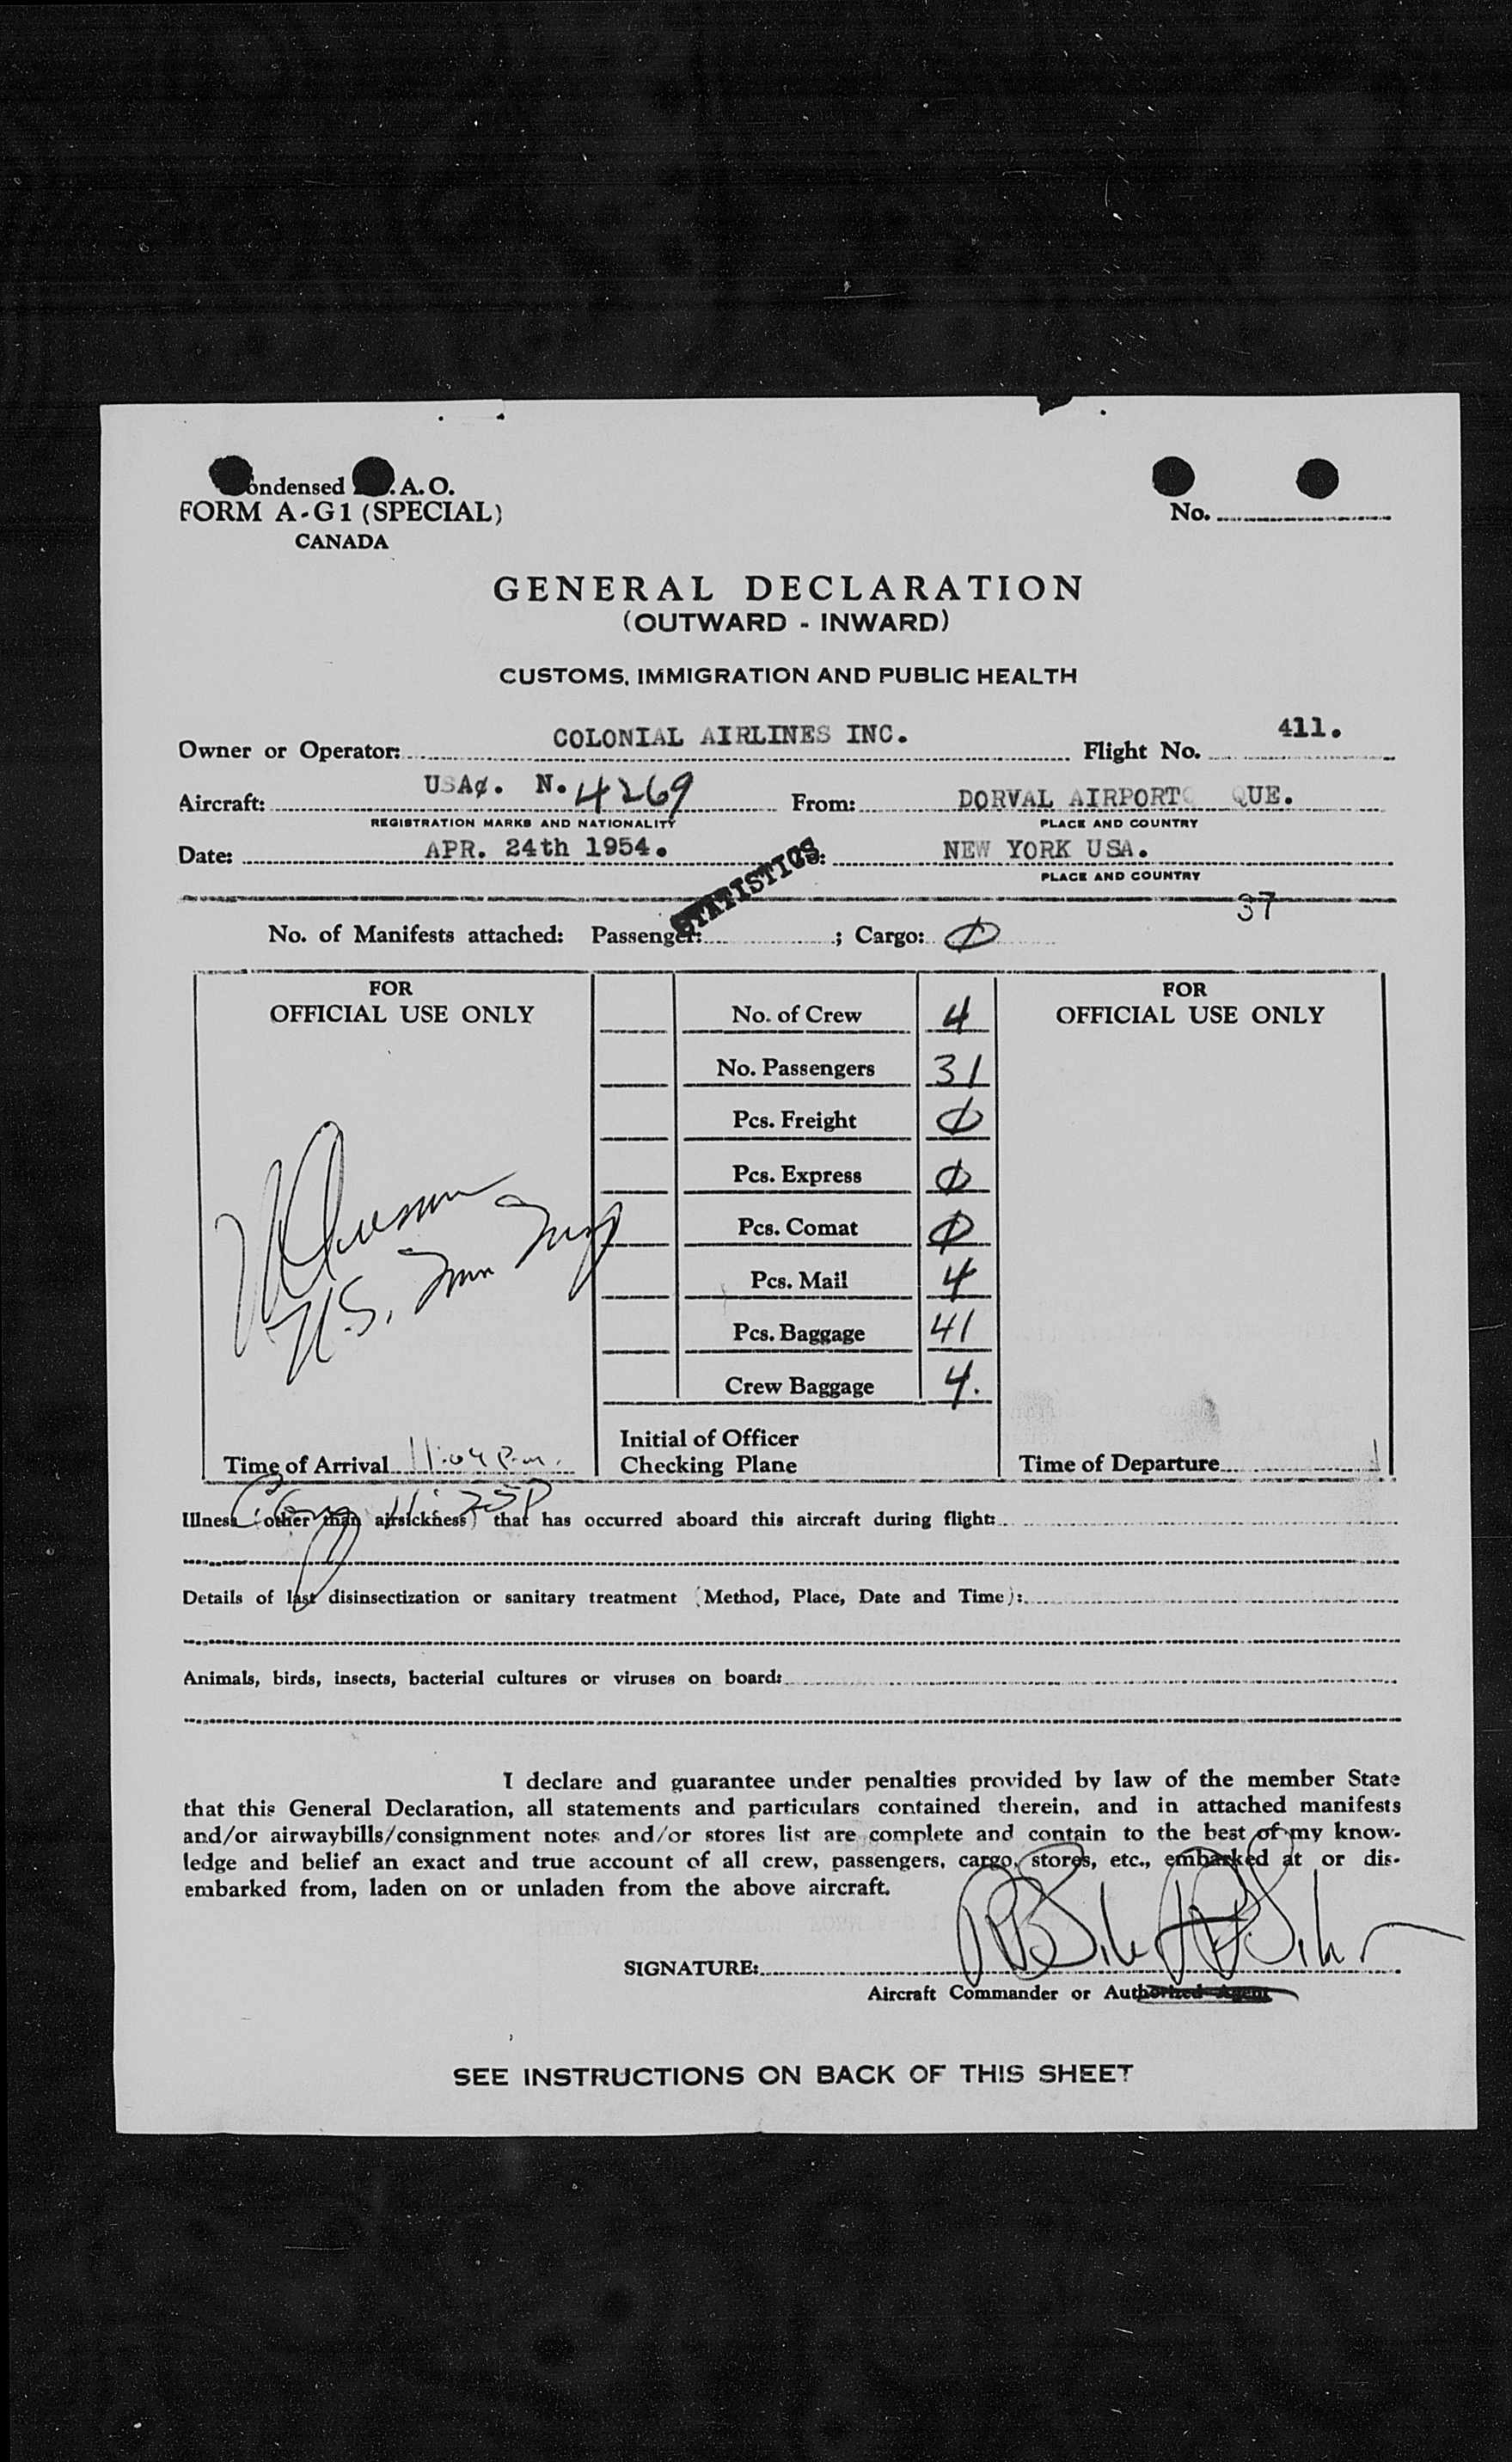 Condensed I.C.A.O.
FORM A-G1 (SPECIAL)
CANADA
No.
GENERAL DECLARATION
(OUTWARD - INWARD)
CUSTOMS, IMMIGRATION AND PUBLIC HEALTH
Owner or Operator: COLONIAL AIRLINES INC. Flight No. 411.
Aircraft: USA¢. N. 4269 From: DORVAL AIRPORT QUE.
REGISTRATION MARKS AND NATIONALITY PLACE AND COUNTRY
Date: APR. 24th 1954. NEW YORK USA.
PLACE AND COUNTRY
STATISTICS
37
No. of Manifests attached: Passenger: ; Cargo: Ø
FOR OFFICIAL USE ONLY
FOR OFFICIAL USE ONLY
No. of Crew 4
No. Passengers 31
Pcs. Freight Ø
Pcs. Express Ø
Pcs. Comat Ø
Pcs. Mail 4
Pcs. Baggage 41
Crew Baggage 4.
U.S. Imm
Initial of Officer
Checking Plane
Time of Arrival 11:04 P.m. Time of Departure
11:25P
Illness (other than airsickness) that has occurred aboard this aircraft during flight:
Details of last disinsectization or sanitary treatment (Method, Place, Date and Time):
Animals, birds, insects, bacterial cultures or viruses on board:
I declare and guarantee under penalties provided by law of the member State
that this General Declaration, all statements and particulars contained therein, and in attached manifests
and/or airwaybills/consignment notes and/or stores list are complete and contain to the best of my know-
ledge and belief an exact and true account of all crew, passengers, cargo, stores, etc., embarked at or dis-
embarked from, laden on or unladen from the above aircraft.
SIGNATURE:
Aircraft Commander or Authorized Agent
SEE INSTRUCTIONS ON BACK OF THIS SHEET